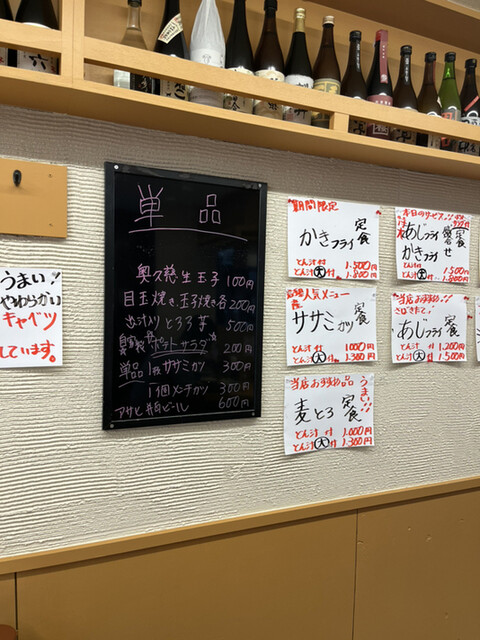 うまい!!
やわらかい
キャベツ
しています。
単品
奥久慈生玉子 100円
目玉焼き、玉子焼き各 200円
出汁入りとろろ芋 500円
自家製ポテトサラダ 200円
単品 1枚ササミカツ 300円
1個メンチカツ 300円
アサヒ 瓶ビール 600円
期間限定
かきフライ定食
とん汁付 1.500円
とん汁大付 1.800円
人気メニュー
ササミカツ定食
とん汁付 1000円
とん汁大付 1.300円
当店おすすめ品
うまい!!
麦とろ定食
とん汁付 1.000円
とん汁大付 1.300円
本日のサービス
あじフライ
かきフライ
定食
1.500円
1.800円
当店おすすめ!
さばきたて!
あじフライ定食
とん汁付 1.200円
とん汁大付 1.500円